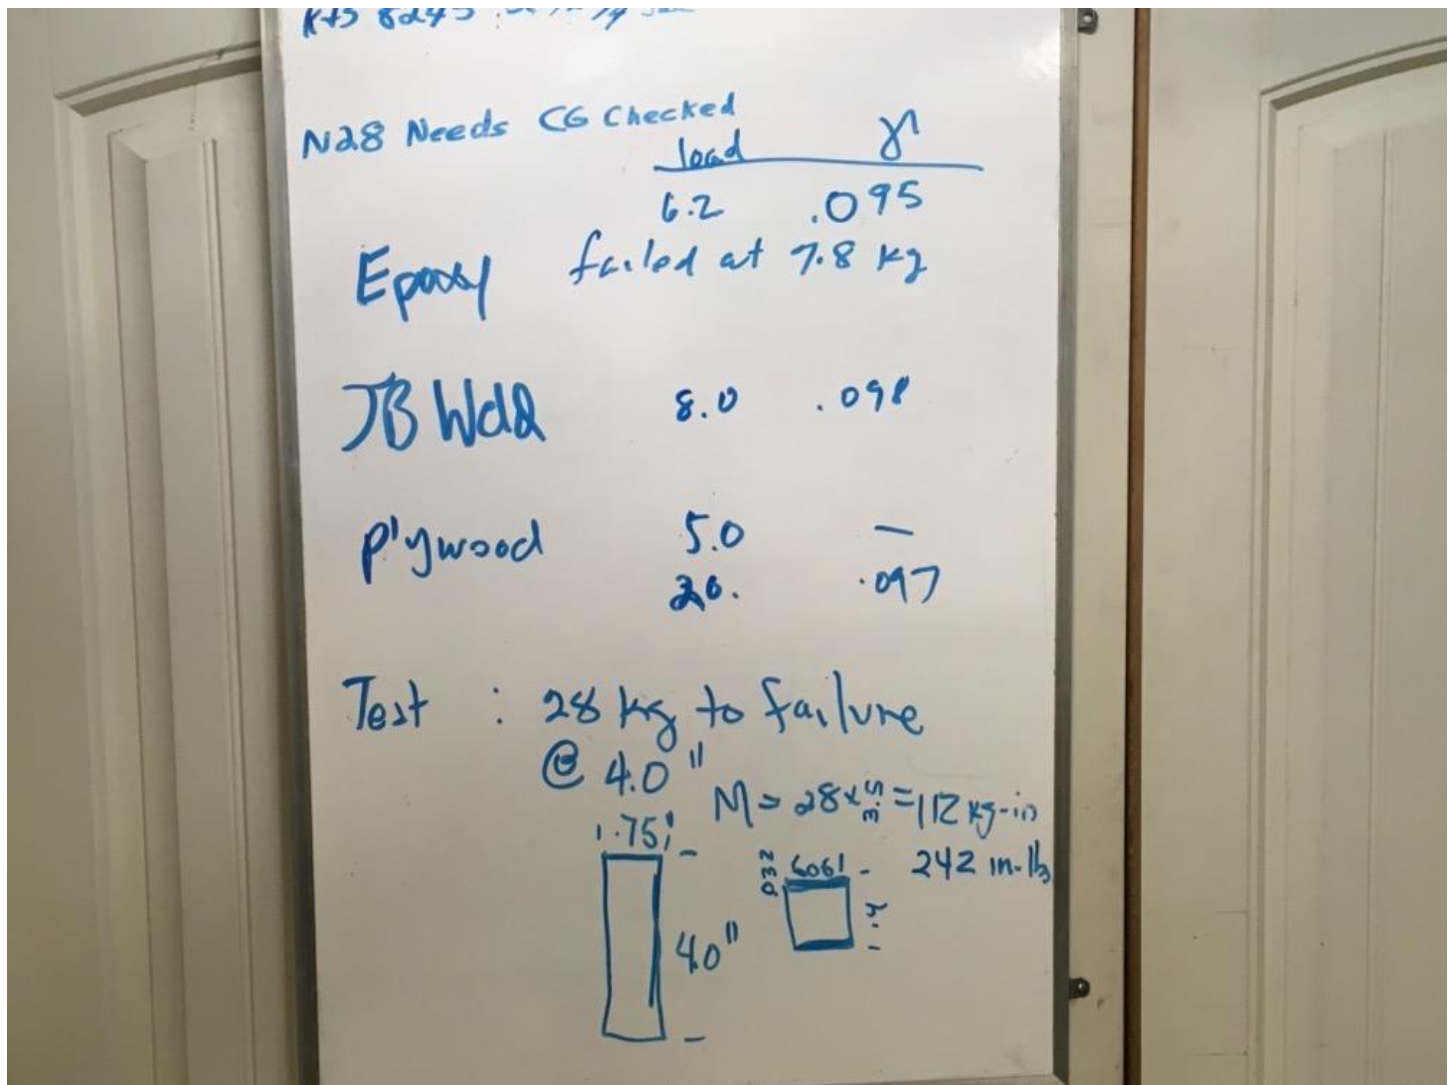 N28 Needs CG Checked
load γ
6.2 .095
Epoxy failed at 7.8 kg
JB Weld 8.0 .098
plywood 5.0 —
20. .097
Test : 28 kg to failure
@ 4.0"
M = 28 x 3.5 = 112 kg-in
242 in-lb
1.75"
4.0"
.032 6061